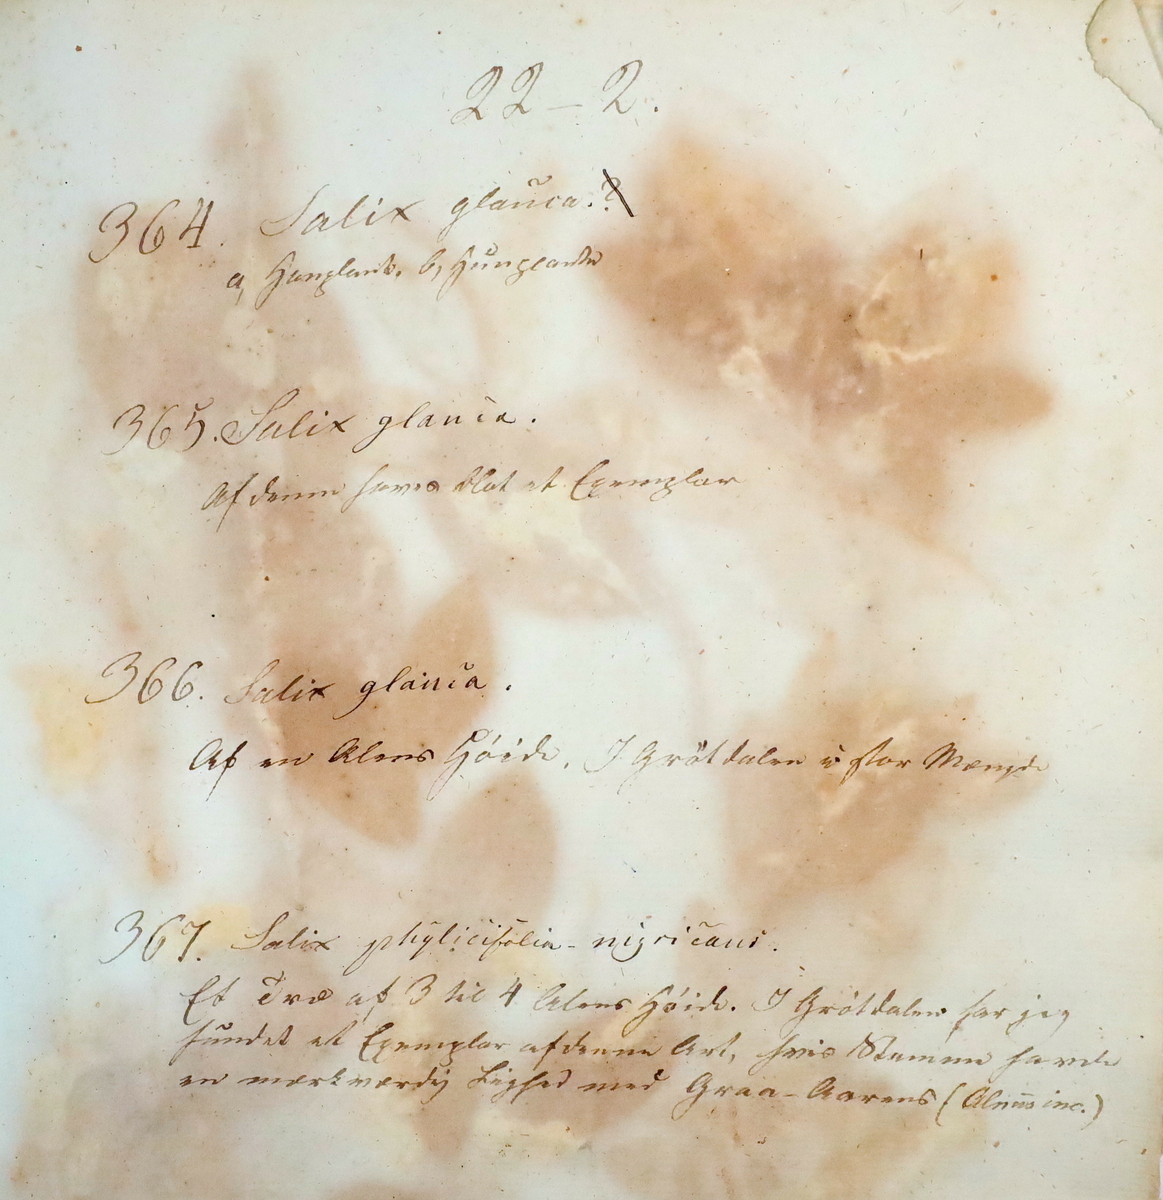 22 – 2.
364. Salix glauca. ?
a, Hanplante. b, Hunplante
365. Salix glauca.
Af denne haves blot et Exemplar
366. Salix glauca.
Af en Alens Høide. I Grötdalen i stor Mængde
367. Salix phylicifolia – nigricans.
Et Træ af 3 til 4 Alens Høide. I Grötdalen har jeg
fundet et Exemplar af denne Art, hvis Stamme havde
en mærkværdig Lighed med Graa-Aarens (Alnus inc.)